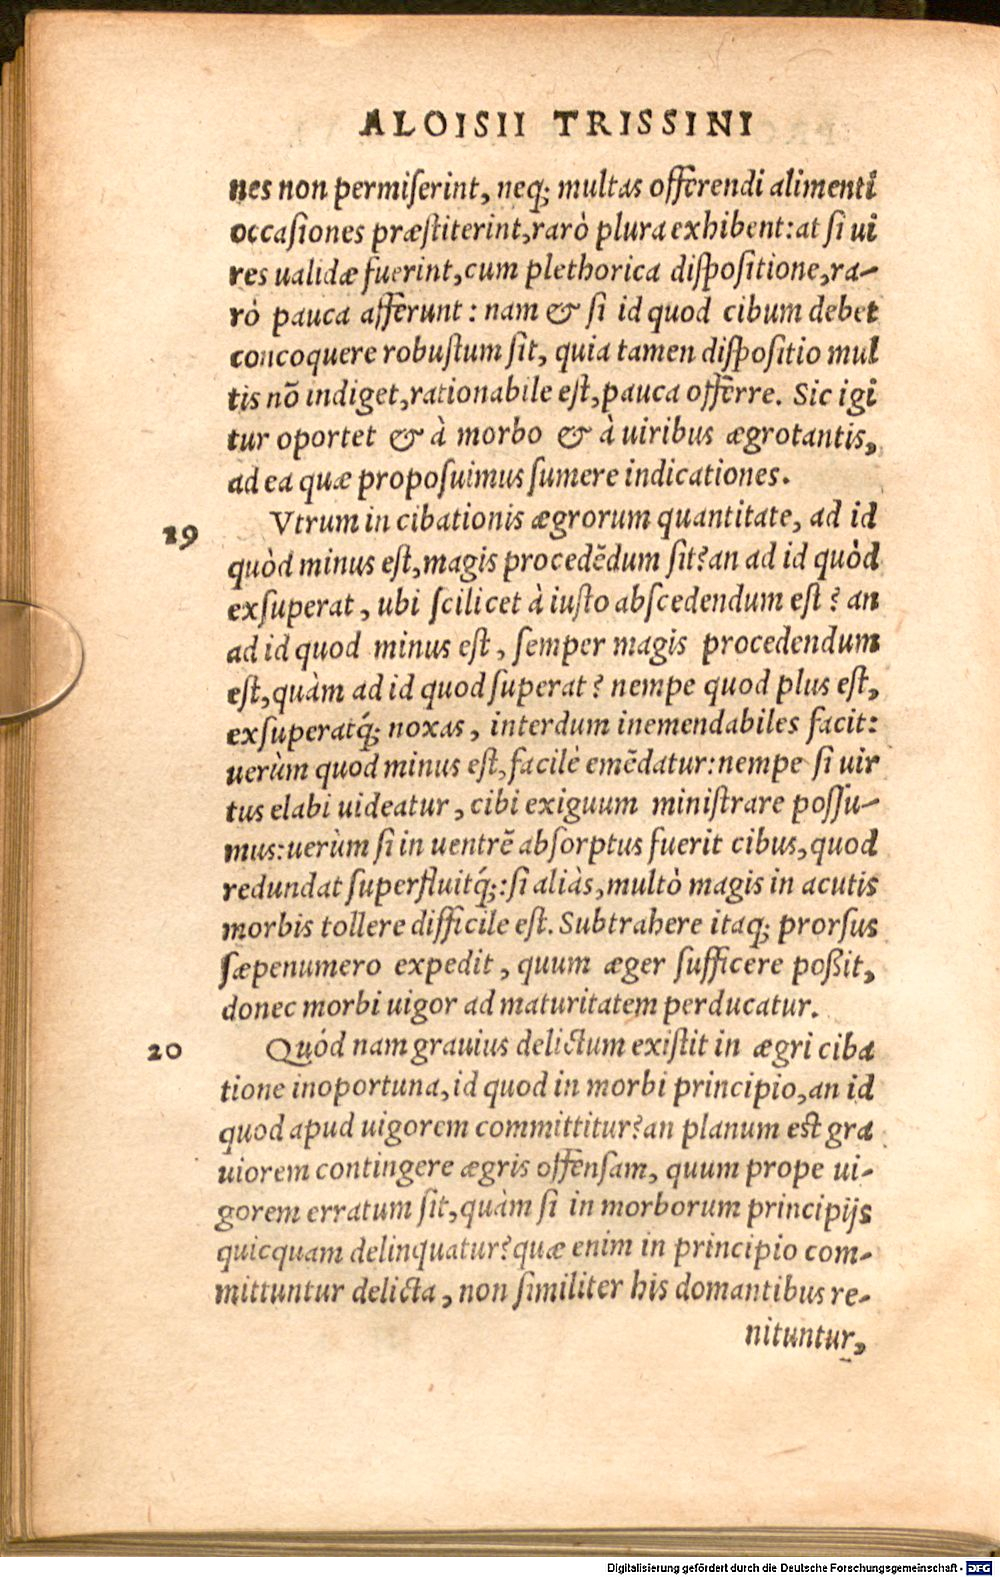 ALOISII TRISSINI
nes non permiserint, neq; multas offerendi alimenti
occasiones præstiterint, rarò plura exhibent: at si ui
res ualidæ fuerint, cum plethorica dispositione, ra-
rò pauca afferunt: nam & si id quod cibum debet
concoquere robustum sit, quia tamen dispositio mul
tis nõ indiget, rationabile est, pauca offerre. Sic igi
tur oportet & à morbo & à uiribus ægrotantis,
ad ea quæ proposuimus sumere indicationes.
19 Vtrum in cibationis ægrorum quantitate, ad id
quòd minus est, magis procedẽdum sit? an ad id quòd
exsuperat, ubi scilicet à iusto abscedendum est? an
ad id quod minus est, semper magis procedendum
est, quàm ad id quod superat? nempe quod plus est,
exsuperatq́; noxas, interdum inemendabiles facit:
uerùm quod minus est, facilè emẽdatur: nempe si uir
tus elabi uideatur, cibi exiguum ministrare possu-
mus: uerùm si in uentrẽ absorptus fuerit cibus, quod
redundat superfluitq́;: si aliàs, multò magis in acutis
morbis tollere difficile est. Subtrahere itaq; prorsus
sæpenumero expedit, quum æger sufficere poßit,
donec morbi uigor ad maturitatem perducatur.
20 Quód nam grauius delictum existit in ægri ciba
tione inoportuna, id quod in morbi principio, an id
quod apud uigorem committitur? an planum est gra
uiorem contingere ægris offensam, quum prope ui-
gorem erratum sit, quàm si in morborum principijs
quicquam delinquatur? quæ enim in principio com-
mittuntur delicta, non similiter his domantibus re-
nituntur,
Digitalisierung gefördert durch die Deutsche Forschungsgemeinschaft - DFG